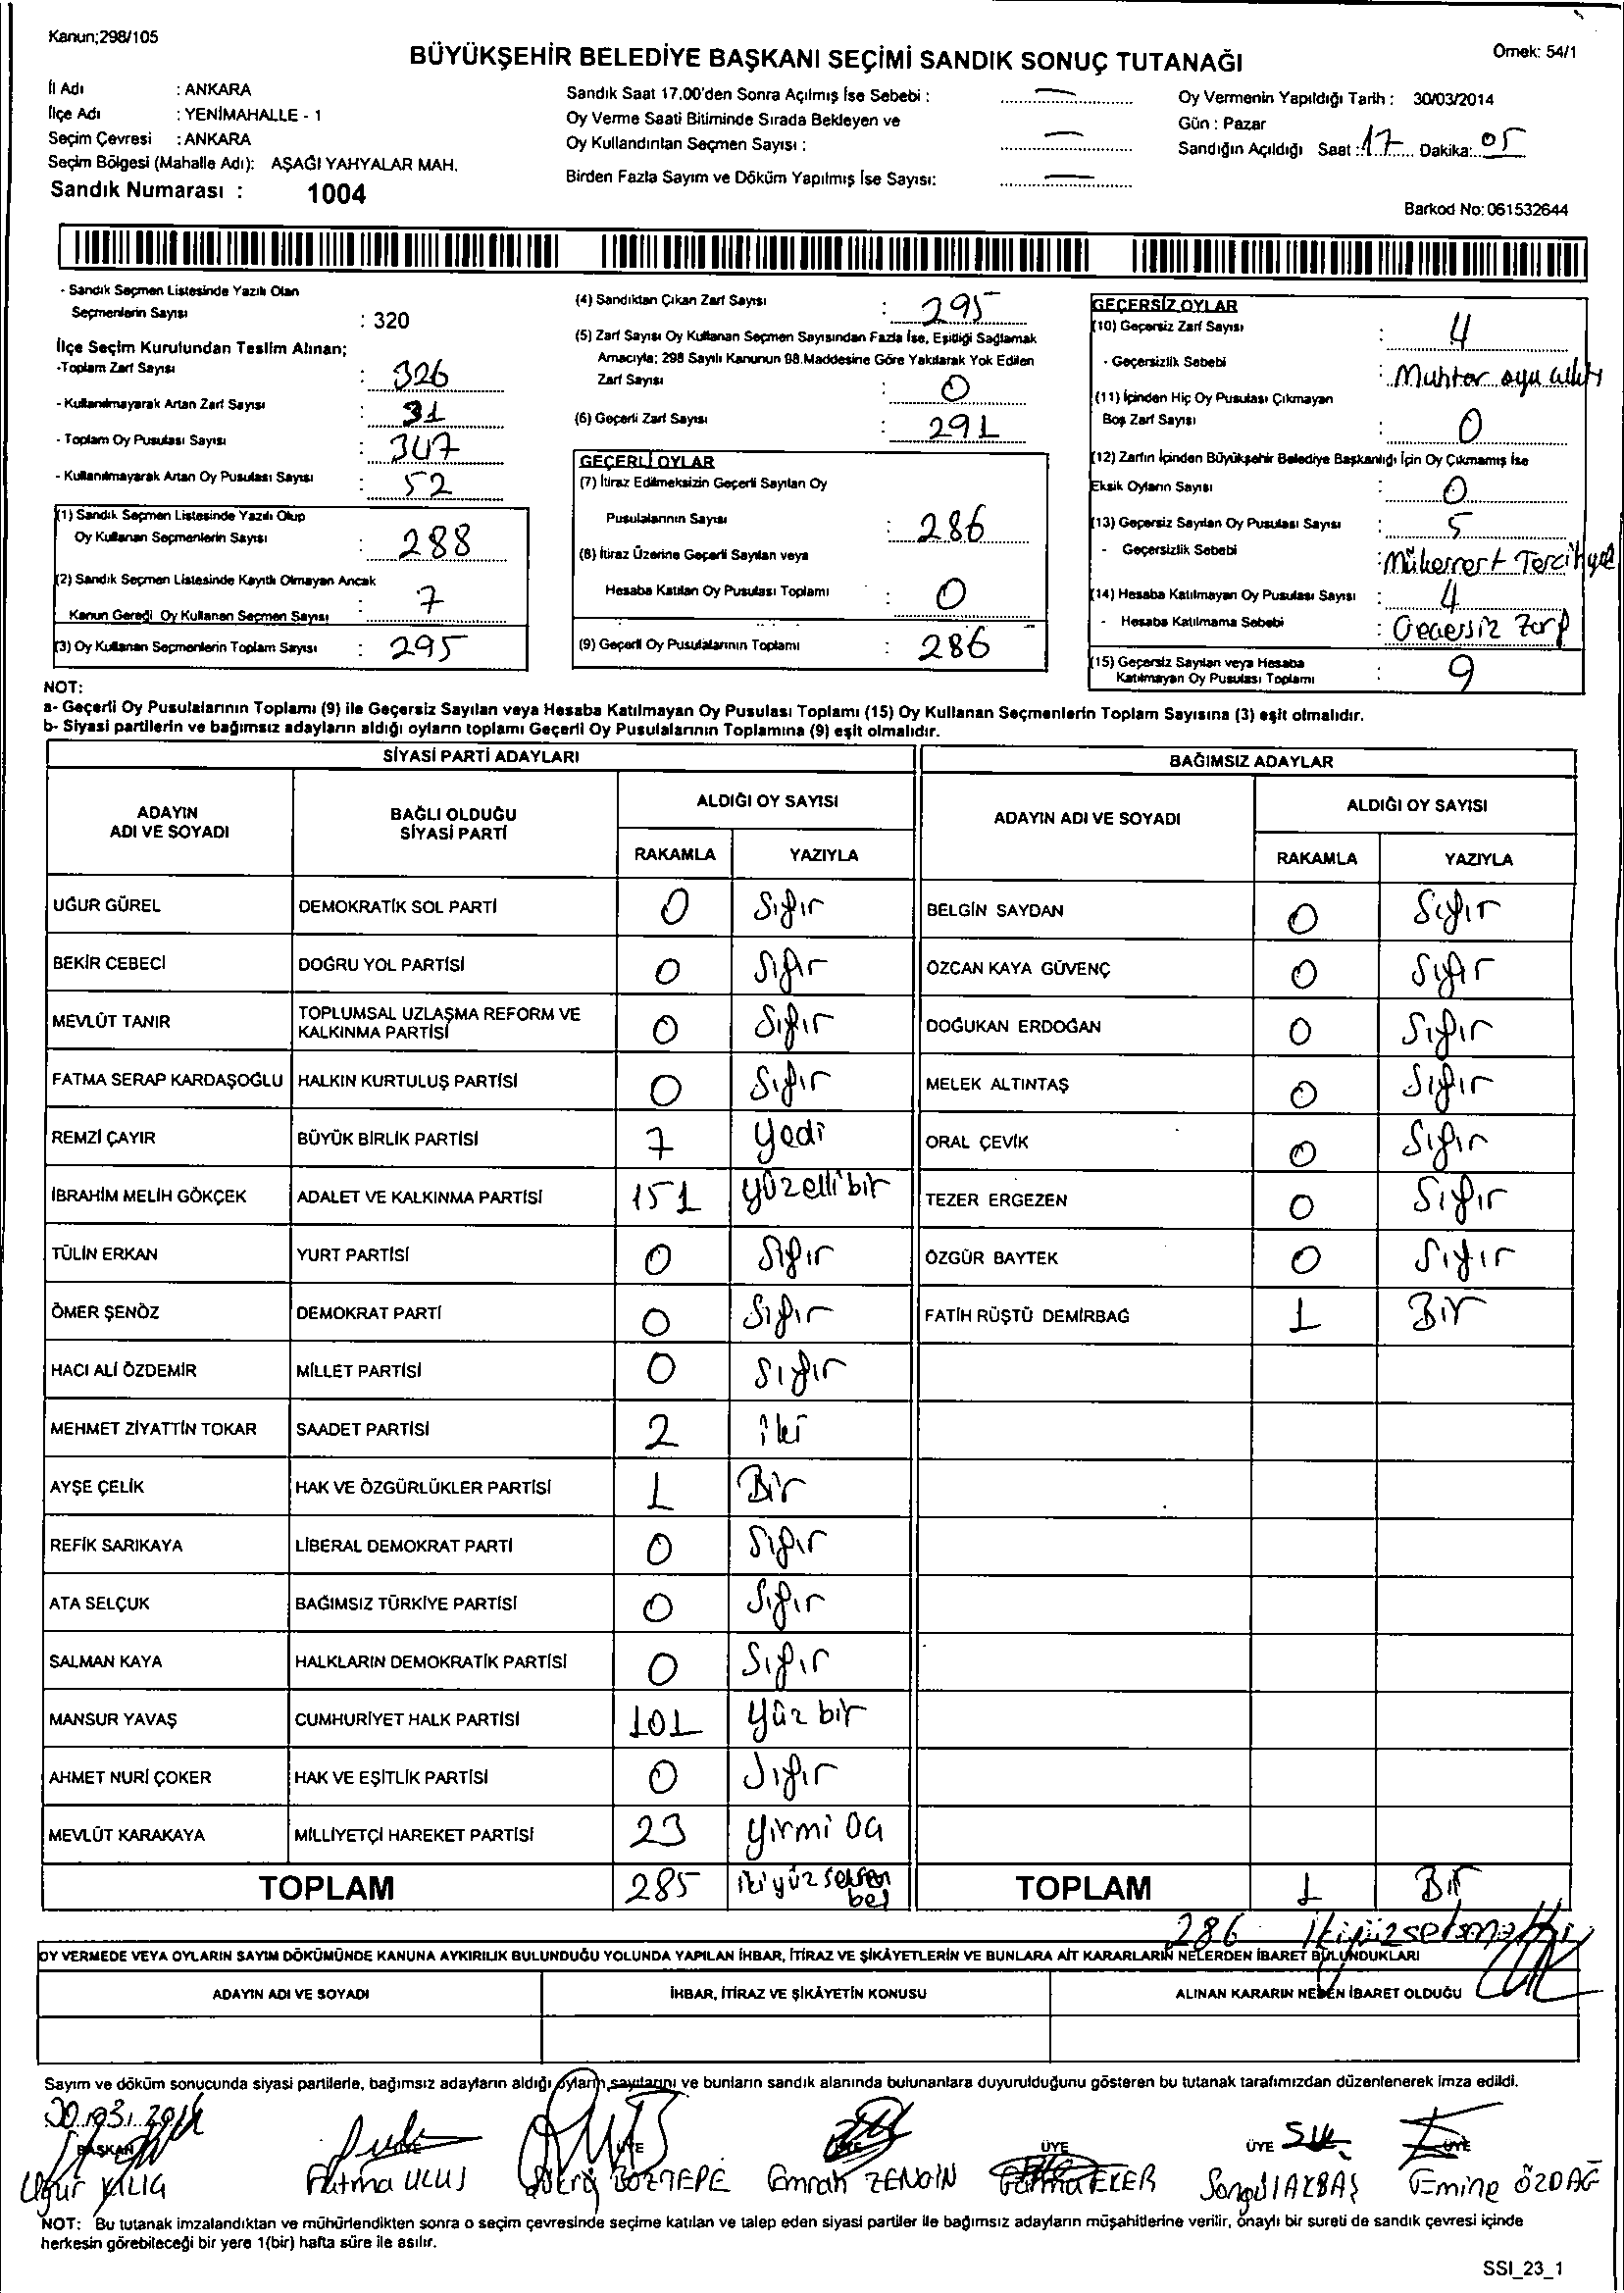 Kanun;298/105
Örnek: 54/1
BÜYÜKŞEHİR BELEDİYE BAŞKANI SEÇİMİ SANDIK SONUÇ TUTANAĞI
İl Adı : ANKARA
İlçe Adı : YENİMAHALLE - 1
Seçim Çevresi : ANKARA
Seçim Bölgesi (Mahalle Adı): AŞAĞI YAHYALAR MAH.
Sandık Numarası : 1004
Sandık Saat 17.00'den Sonra Açılmış İse Sebebi : —
Oy Verme Saati Bitiminde Sırada Bekleyen ve
Oy Kullandırılan Seçmen Sayısı : —
Birden Fazla Sayım ve Döküm Yapılmış İse Sayısı: —
Oy Vermenin Yapıldığı Tarih : 30/03/2014
Gün : Pazar
Sandığın Açıldığı Saat : 17 Dakika: 05
Barkod No: 061532644
- Sandık Seçmen Listesinde Yazılı Olan
Seçmenlerin Sayısı : 320
İlçe Seçim Kurulundan Teslim Alınan;
-Toplam Zarf Sayısı : 326
- Kullanılmayarak Artan Zarf Sayısı : 31
- Toplam Oy Pusulası Sayısı : 347
- Kullanılmayarak Artan Oy Pusulası Sayısı : 52
(1) Sandık Seçmen Listesinde Yazılı Olup
Oy Kullanan Seçmenlerin Sayısı : 288
(2) Sandık Seçmen Listesinde Kayıtlı Olmayan Ancak
Kanun Gereği Oy Kullanan Seçmen Sayısı : 7
(3) Oy Kullanan Seçmenlerin Toplam Sayısı : 295
(4) Sandıktan Çıkan Zarf Sayısı : 295
(5) Zarf Sayısı Oy Kullanan Seçmen Sayısından Fazla İse, Eşitliği Sağlamak
Amacıyla; 298 Sayılı Kanunun 98.Maddesine Göre Yakılarak Yok Edilen
Zarf Sayısı : 0
(6) Geçerli Zarf Sayısı : 291
GEÇERLİ OYLAR
(7) İtiraz Edilmeksizin Geçerli Sayılan Oy
Pusulalarının Sayısı : 286
(8) İtiraz Üzerine Geçerli Sayılan veya
Hesaba Katılan Oy Pusulası Toplamı : 0
(9) Geçerli Oy Pusulalarının Toplamı : 286
GEÇERSİZ OYLAR
(10) Geçersiz Zarf Sayısı : 4
- Geçersizlik Sebebi : Muhtar oyu
(11) İçinden Hiç Oy Pusulası Çıkmayan
Boş Zarf Sayısı : 0
(12) Zarfın İçinden Büyükşehir Belediye Başkanlığı İçin Oy Çıkmamış İse
Eksik Oyların Sayısı : 0
(13) Geçersiz Sayılan Oy Pusulası Sayısı : 5
- Geçersizlik Sebebi : Mükerrert
(14) Hesaba Katılmayan Oy Pusulası Sayısı : 4
- Hesaba Katılmama Sebebi : Geçersiz Zarf
(15) Geçersiz Sayılan veya Hesaba
Katılmayan Oy Pusulası Toplamı : 9
NOT:
a- Geçerli Oy Pusulalarının Toplamı (9) ile Geçersiz Sayılan veya Hesaba Katılmayan Oy Pusulası Toplamı (15) Oy Kullanan Seçmenlerin Toplam Sayısına (3) eşit olmalıdır.
b- Siyasi partilerin ve bağımsız adayların aldığı oyların toplamı Geçerli Oy Pusulalarının Toplamına (9) eşit olmalıdır.
SİYASİ PARTİ ADAYLARI
ADAYIN ADI VE SOYADI BAĞLI OLDUĞU SİYASİ PARTİ ALDIĞI OY SAYISI
RAKAMLA YAZIYLA
UĞUR GÜREL DEMOKRATİK SOL PARTİ 0 Sıfır
BEKİR CEBECİ DOĞRU YOL PARTİSİ 0 Sıfır
MEVLÜT TANIR TOPLUMSAL UZLAŞMA REFORM VE KALKINMA PARTİSİ 0 Sıfır
FATMA SERAP KARDAŞOĞLU HALKIN KURTULUŞ PARTİSİ 0 Sıfır
REMZİ ÇAYIR BÜYÜK BİRLİK PARTİSİ 7 yedi
İBRAHİM MELİH GÖKÇEK ADALET VE KALKINMA PARTİSİ 151 yüzellibir
TÜLİN ERKAN YURT PARTİSİ 0 Sıfır
ÖMER ŞENÖZ DEMOKRAT PARTİ 0 Sıfır
HACI ALİ ÖZDEMİR MİLLET PARTİSİ 0 Sıfır
MEHMET ZİYATTİN TOKAR SAADET PARTİSİ 2 iki
AYŞE ÇELİK HAK VE ÖZGÜRLÜKLER PARTİSİ 1 Bir
REFİK SARIKAYA LİBERAL DEMOKRAT PARTİ 0 Sıfır
ATA SELÇUK BAĞIMSIZ TÜRKİYE PARTİSİ 0 Sıfır
SALMAN KAYA HALKLARIN DEMOKRATİK PARTİSİ 0 Sıfır
MANSUR YAVAŞ CUMHURİYET HALK PARTİSİ 101 yüz bir
AHMET NURİ ÇOKER HAK VE EŞİTLİK PARTİSİ 0 Sıfır
MEVLÜT KARAKAYA MİLLİYETÇİ HAREKET PARTİSİ 23 yirmi üç
TOPLAM 285 ikiyüz seksen beş
BAĞIMSIZ ADAYLAR
ADAYIN ADI VE SOYADI ALDIĞI OY SAYISI
RAKAMLA YAZIYLA
BELGİN SAYDAN 0 Sıfır
ÖZCAN KAYA GÜVENÇ 0 Sıfır
DOĞUKAN ERDOĞAN 0 Sıfır
MELEK ALTINTAŞ 0 Sıfır
ORAL ÇEVİK 0 Sıfır
TEZER ERGEZEN 0 Sıfır
ÖZGÜR BAYTEK 0 Sıfır
FATİH RÜŞTÜ DEMİRBAĞ 1 Bir
TOPLAM 1 Bir
286 ikiyüzseksenaltı
OY VERMEDE VEYA OYLARIN SAYIM DÖKÜMÜNDE KANUNA AYKIRILIK BULUNDUĞU YOLUNDA YAPILAN İHBAR, İTİRAZ VE ŞİKÂYETLERİN VE BUNLARA AİT KARARLARIN NELERDEN İBARET BULUNDUKLARI
ADAYIN ADI VE SOYADI İHBAR, İTİRAZ VE ŞİKÂYETİN KONUSU ALINAN KARARIN NEDEN İBARET OLDUĞU
Sayım ve döküm sonucunda siyasi partilerle, bağımsız adayların aldığı oyların sayılarını ve bunların sandık alanında bulunanlara duyurulduğunu gösteren bu tutanak tarafımızdan düzenlenerek imza edildi.
30.03.2014
BAŞKAN ÜYE ÜYE ÜYE ÜYE ÜYE ÜYE
Uğur KILIG Fatma ULUS BOZTEPE Emrah ZENGİN Fatma EKER Songül AKBAŞ Emine ÖZDAĞ
NOT: Bu tutanak imzalandıktan ve mühürlendikten sonra o seçim çevresinde seçime katılan ve talep eden siyasi partiler ile bağımsız adayların müşahitlerine verilir, onaylı bir sureti de sandık çevresi içinde
herkesin görebileceği bir yere 1(bir) hafta süre ile asılır.
SSI_23_1